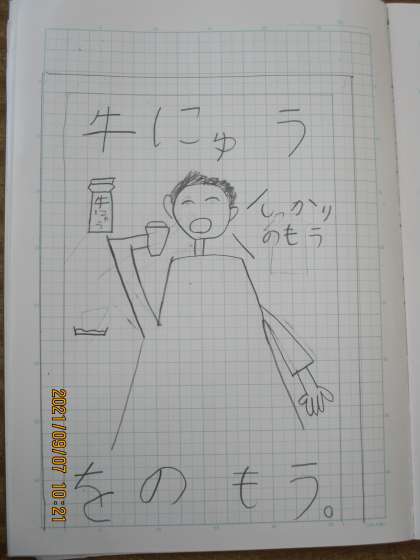 牛にゅう
牛にゅう
しっかり
のもう
をのもう。
2021/09/07 10:21